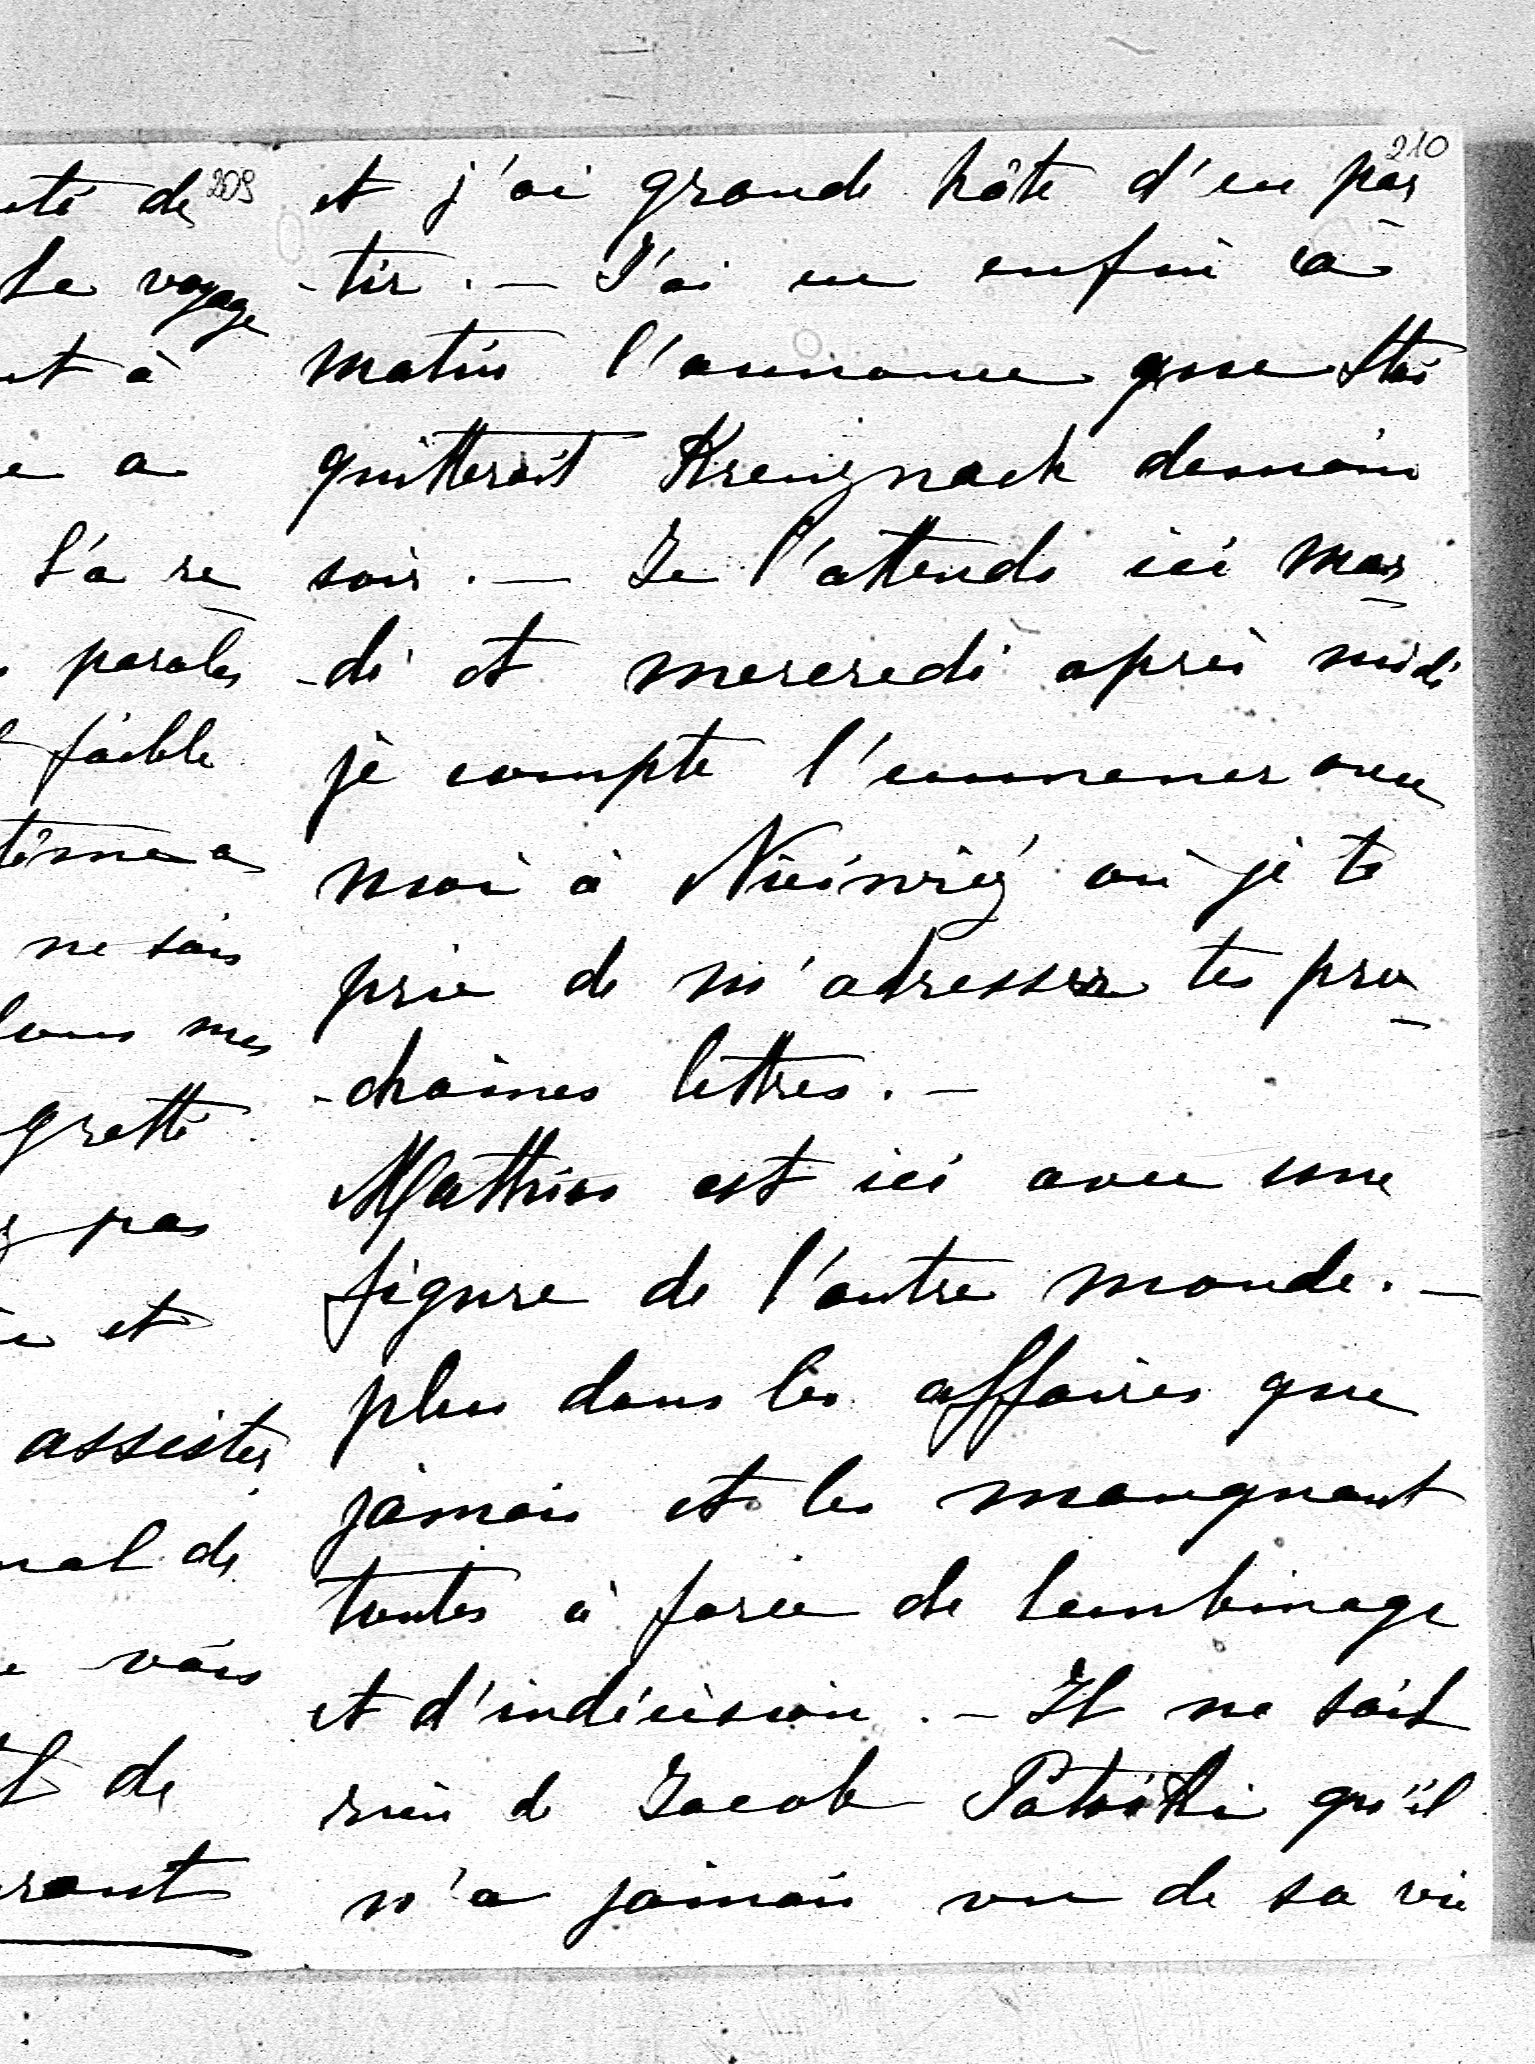 209
uté de
Le voyage
nt à
e a
l'a re
paroles
faible
ne sais
mes
grette
pas
et
assister
nal de
vais
de
ront
210
et j'ai grande hâte d'en par
-tir. — J'ai eu enfin ce
matin l'annonce que Staś
quitterait Kreuznach demain
soir. — Je l'attends ici mar
-di et mercredi après midi
je compte l'emmener avec
moi à Niéświéź où je te
prie de m'adresser tes pro
-chaines lettres. —
Mathias est ici avec une
figure de l'autre monde. —
plus dans les affaires que
jamais et les manquant
toutes à force de lambinage
et d'indécision. — Il ne sait
rien de Jacob Potoćki qu'il
n'a jamais vu de sa vie